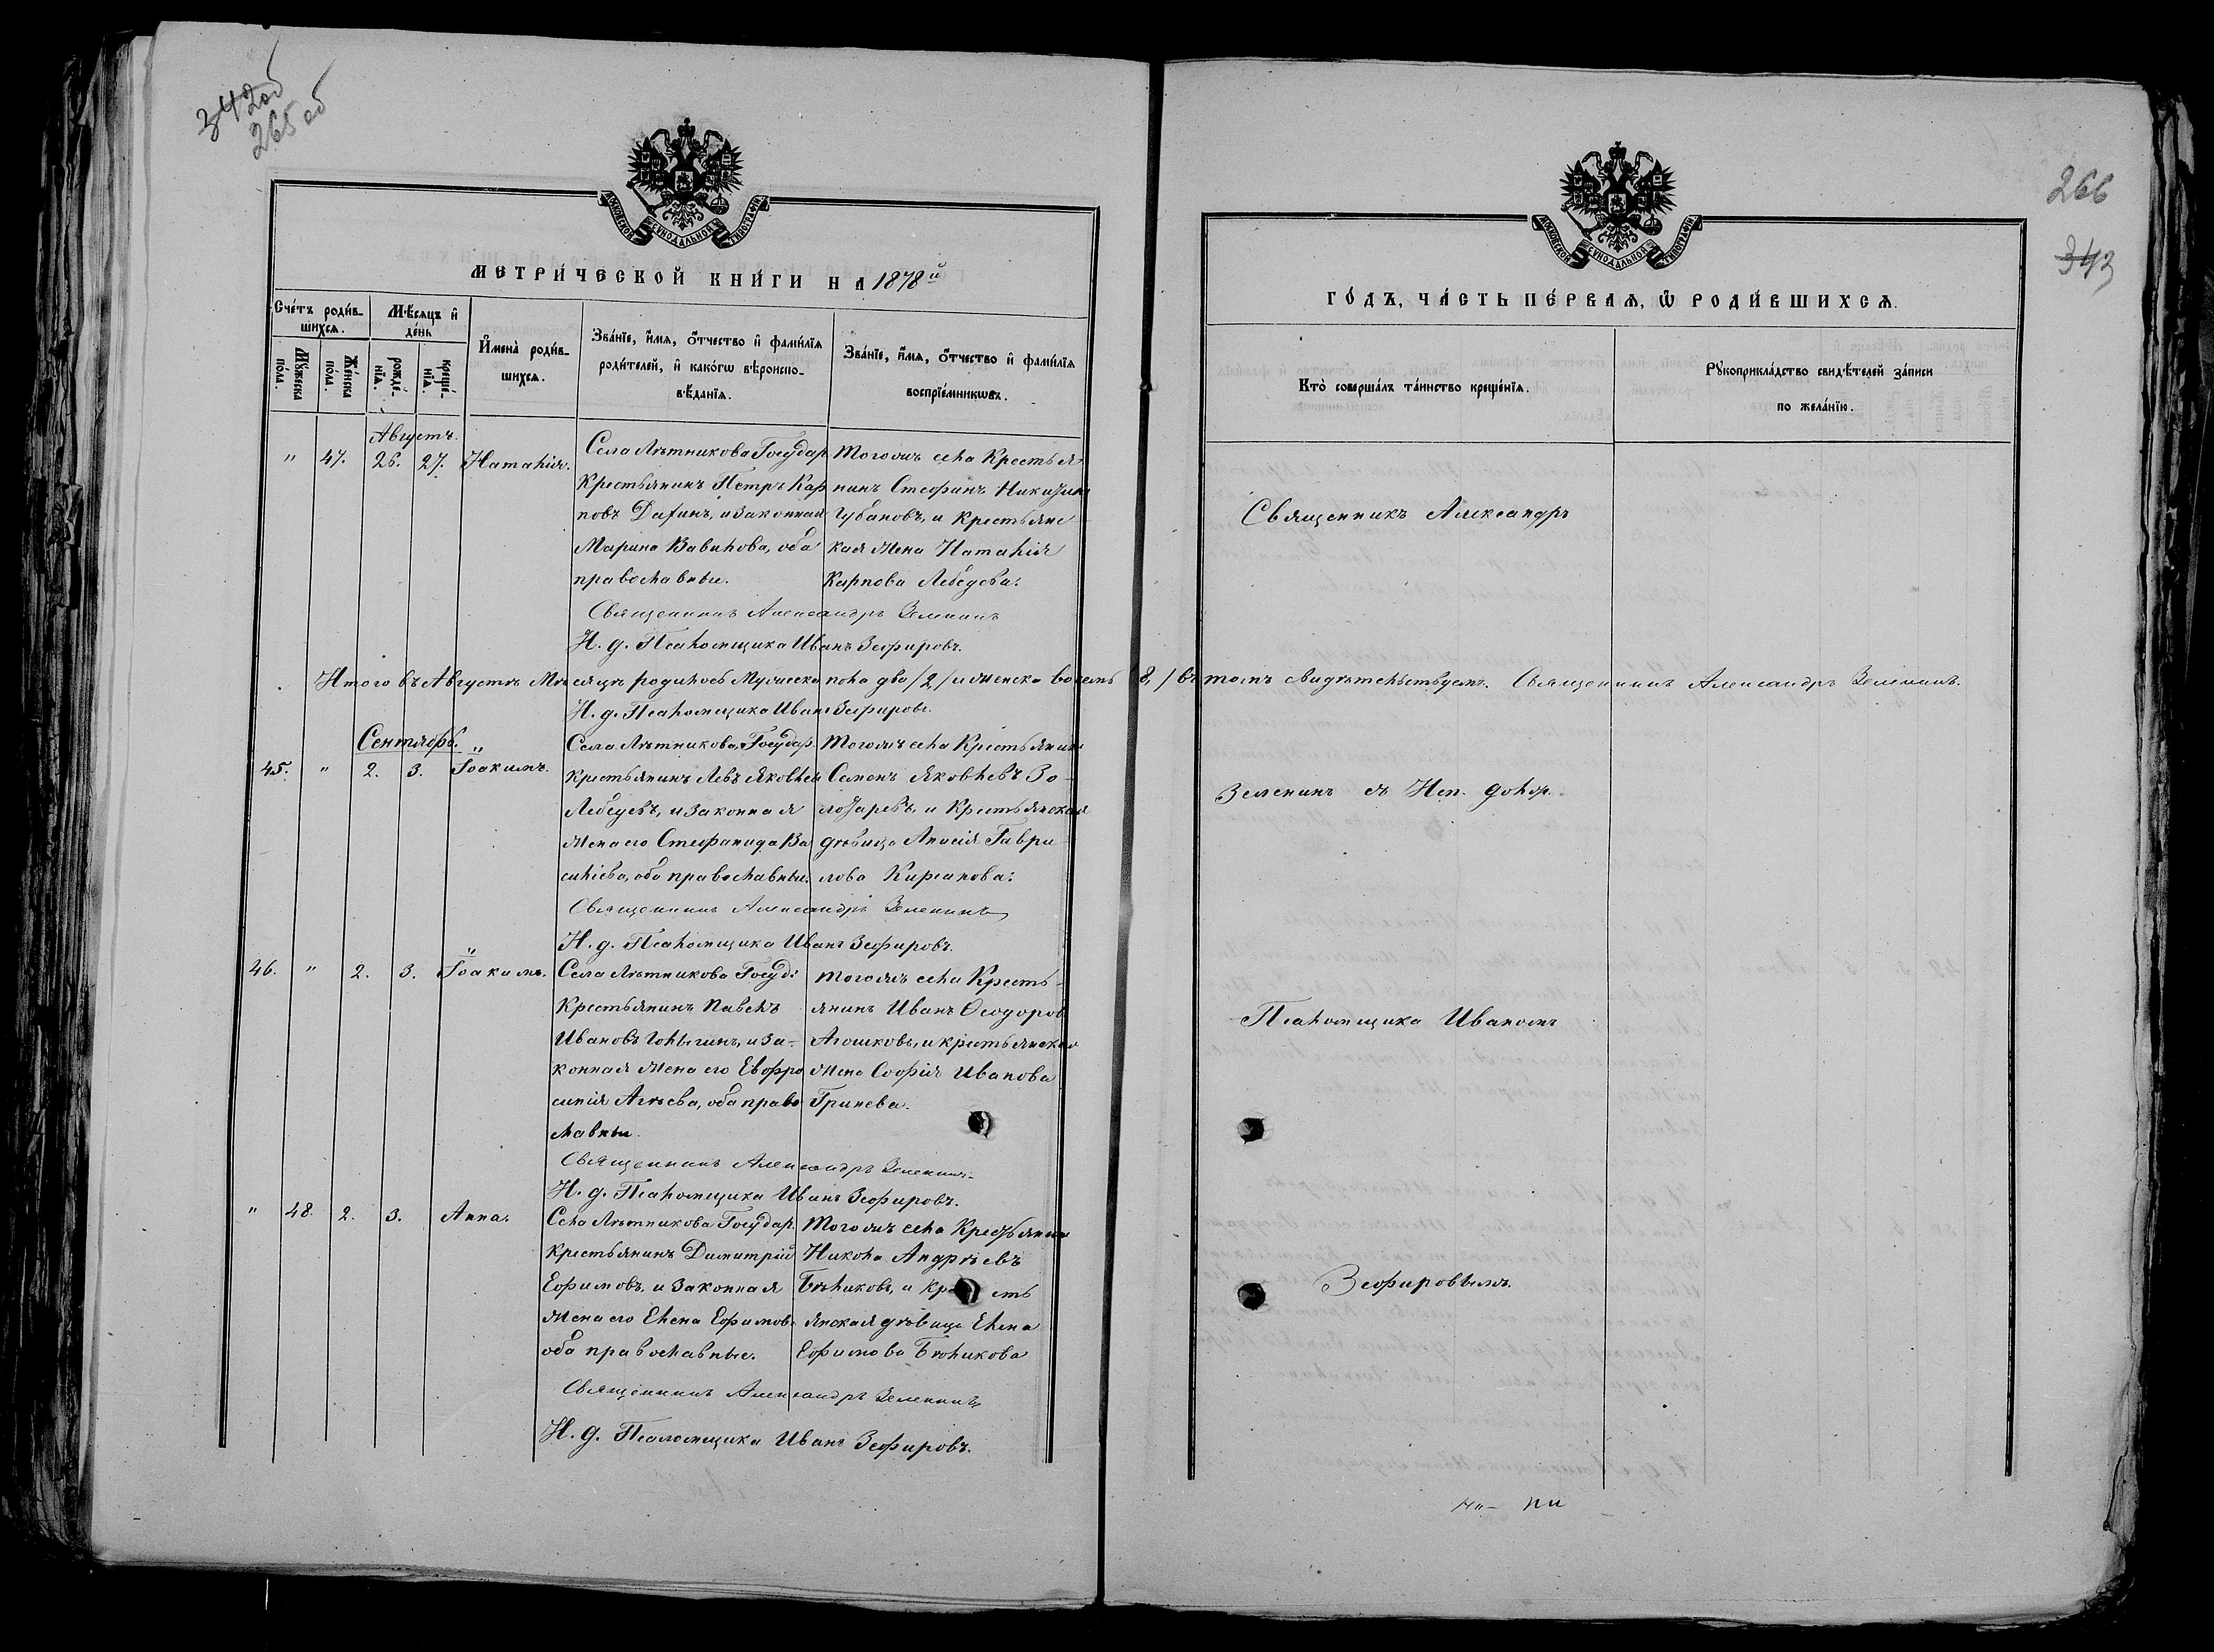 342об
265 об
МОСКОВСКОЙ СѴНОДАЛЬНОЙ ТИПОГРАФІИ
МЕТРИ́ЧЕСКОЙ КНИ́ГИ НА 1878й
Сче́тъ роди́вшихсѧ.
Мѣ́сѧцъ и҆ де́нь
И҆мена̀ роди́вшихсѧ.
Зва́нїе, и҆́мѧ, ѻ҆́тчество и҆ фами́лїѧ родителей, и҆ како́гѡ вѣроисповѣ́данїѧ.
Зва́нїе, и҆́мѧ, ѻ҆́тчество и҆ фами́лїѧ воспрїе́мникѡвъ.
Мꙋ́жеска по́ла.
Же́нска по́ла.
рожде́нїѧ.
креще́нїѧ.
Августъ.
" 47. 26. 27. Наталія.
Села Лѣтникова Государ.
Крестьянинъ Петръ Кар
повъ, и законная
Марина Вавилова, оба
православные.
Тогожъ села Крестья
нинъ Стефанъ Никитинъ
Губановъ, и крестьянс
кая жена Наталія
Карпова Лебедева.
Священникъ Александръ Зеленинъ
И. д. Псаломщика Иванъ Зефировъ.
Итого въ Августѣ Мѣсяцѣ родилось Мужеска пола два /2/ и женска восемь /8,/ въ томъ свидѣтельствуемъ. Священникъ Александръ Зеленинъ.
И. д. Псаломщика Иванъ Зефировъ.
Сентябрь.
45. " 2. 3. Іоакимъ.
Села Лѣтникова, Государ.
крестьянинъ Левъ Яковлевъ
Лебедевъ, и законная
жена его Стефанида Ва
сильева, оба православные.
Тогожъ села Крестьянинъ
Семенъ Яковлевъ Зо
лотаревъ, и Крестьянская
дѣвица Анисія Гаври
лова Кирсанова.
Священникъ Александръ Зеленинъ
И. д. Псаломщика Иванъ Зефировъ.
46. " 2. 3. Іоакимъ.
Села Лѣтникова Госуд.
Крестьянинъ Павелъ
Ивановъ Голыгинъ, и за-
конная жена его Евфро
синія Агѣева, оба право
славные.
Тогожъ села Кресть-
янинъ Иванъ Ѳеодоров
Агошковъ, и крестьянская
жена Софія Иванова
Гринева.
Священникъ Александръ Зеленинъ.
И. д. Псаломщика Иванъ Зефировъ.
" 48. 2. 3. Анна.
Села Лѣтникова Государ.
крестьянинъ Димитрій
Ефимовъ, и законная
жена его Елена Ефимова
оба православные.
Тогожъ села Крестьянинъ
Никола Андрѣевъ
Бѣликовъ, и кресть
янская дѣвица Елена
Ефимова Бѣликова
Священникъ Александръ Зеленинъ
И. д. Псаломщика Иванъ Зефировъ.
266
343
МОСКОВСКОЙ СѴНОДАЛЬНОЙ ТИПОГРАФІИ
ГО́ДЪ, ЧА́СТЬ ПЕ́РВАѦ, Ѡ҆ РОДИ́ВШИХСѦ.
Кто̀ соверша́лъ та́инство креще́нїѧ.
Рꙋкоприкла́дство свидѣ́телей за́писи по жела́нїю.
Священникъ Александръ
Зеленинъ съ Исп. должн.
Псаломщика Иваномъ
Зефировымъ.